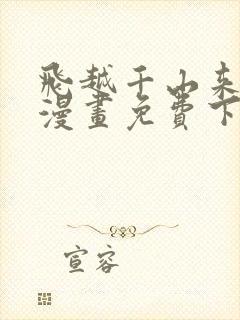 飛越千山來
漫畫免費下
宣容